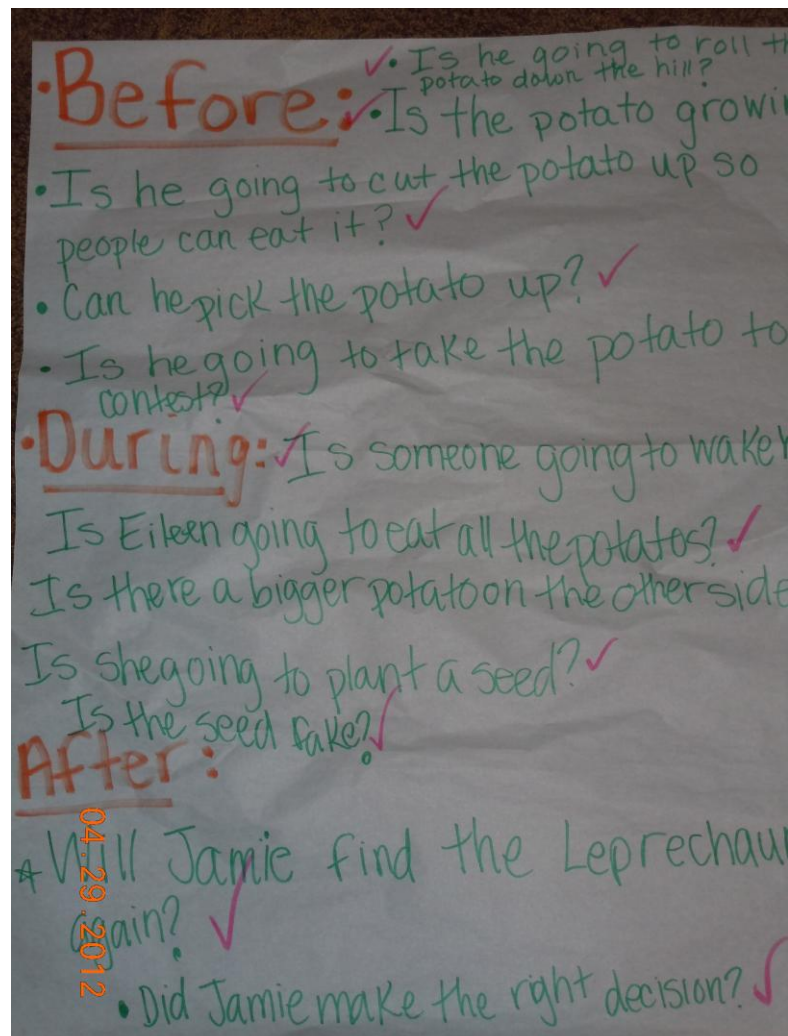 • Is he going to roll
•Before: potato down the hill?
• Is the potato
• Is he going to cut the potato up so
people can eat it?
• Can he pick the potato up?
• Is he going to take the potato to
contest?
•During: Is someone going to wake
Is Eileen going to eat all the potatos?
Is there a bigger potato on the other side
Is she going to plant a seed?
Is the seed fake?
After:
Will Jamie find the
again?
• Did Jamie make the right decision?
04.29.2012